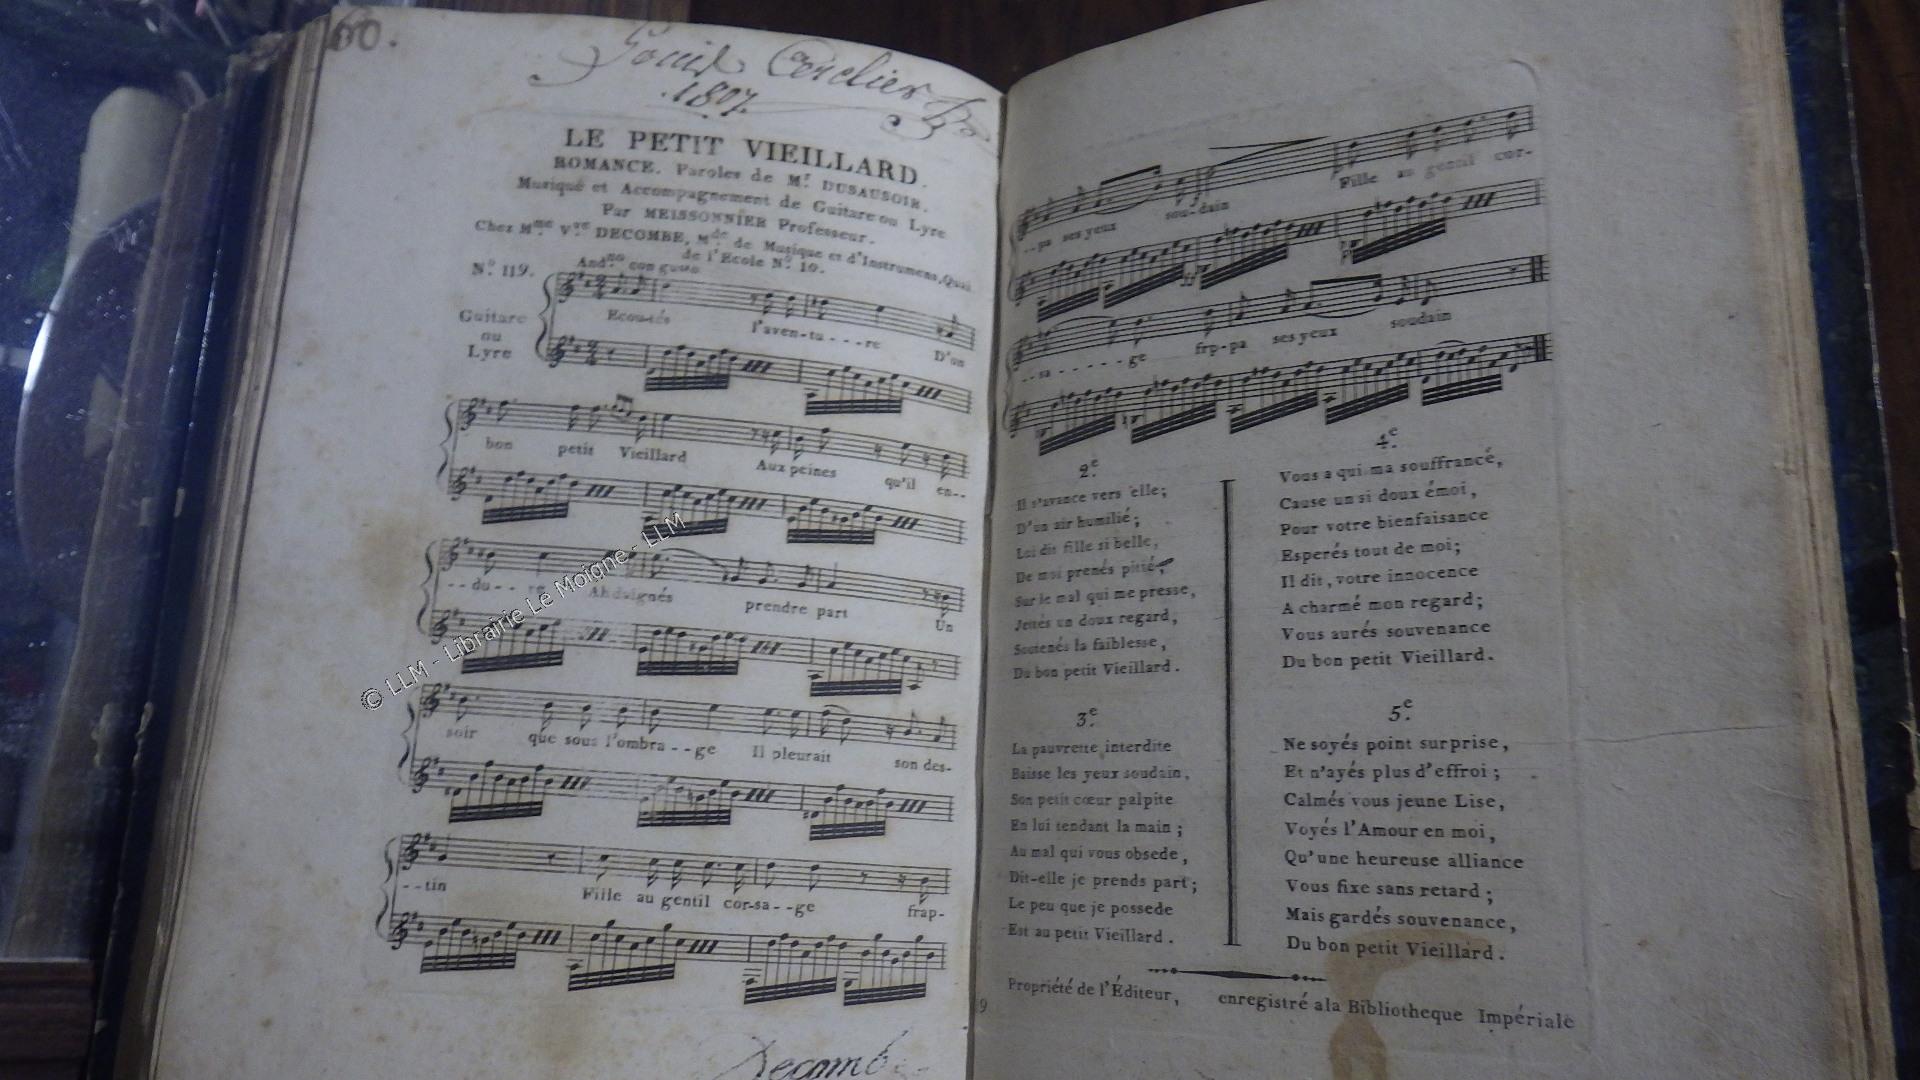 60.
1807.
LE PETIT VIEILLARD.
ROMANCE. Paroles de Mr. DUSAUSOIR.
Musique et Accompagnement de Guitare ou Lyre
Par MEISSONNIER Professeur.
Chez Mme. Vve. DECOMBE, Mde. de Musique et d'Instrumens, Quai
de l'Ecole No. 10.
No. 119.
Andno con gusto
Guitare
ou
Lyre
Ecoutés l'aven-tu---re D'un
bon petit Vieillard Aux peines qu'il en--
--du--re Ah daignés prendre part Un
soir que sous l'ombra--ge Il pleurait son des-
--tin Fille au gentil cor-sa--ge frap-
Decombe
© LLM - Librairie Le Moigne - LLM
--pa ses yeux sou-dain Fille au gentil cor-
--sa-----ge frp-pa ses yeux soudain
2e.
Il s'avance vers elle;
D'un air humilié;
Lui dit fille si belle,
De moi prenés pitié,
Sur le mal qui me presse,
Jettés un doux regard,
Soutenés la faiblesse,
Du bon petit Vieillard.
3e.
La pauvrette interdite
Baisse les yeux soudain,
Son petit cœur palpite
En lui tendant la main;
Au mal qui vous obsede,
Dit-elle je prends part;
Le peu que je possede
Est au petit Vieillard.
4e.
Vous a qui ma souffrance,
Cause un si doux émoi,
Pour votre bienfaisance
Esperés tout de moi;
Il dit, votre innocence
A charmé mon regard;
Vous aurés souvenance
Du bon petit Vieillard.
5e.
Ne soyés point surprise,
Et n'ayés plus d'effroi;
Calmés vous jeune Lise,
Voyés l'Amour en moi,
Qu'une heureuse alliance
Vous fixe sans retard;
Mais gardés souvenance,
Du bon petit Vieillard.
9
Propriété de l'Éditeur, enregistré ala Bibliotheque Impériale